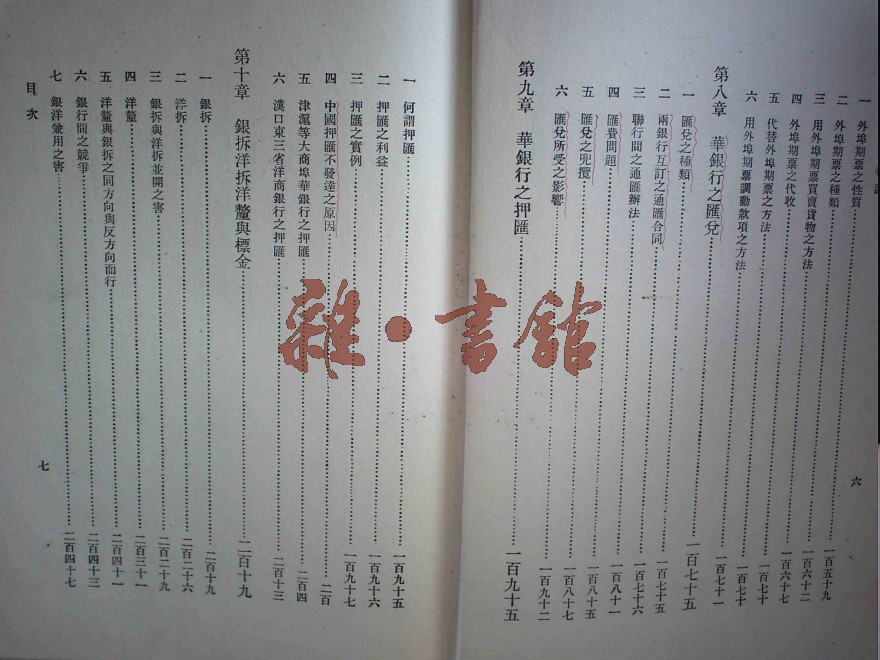 一 外埠期票之性質 一百五十九
二 外埠期票之種類 一百六十二
三 用外埠期票買賣貨物之方法
四 外埠期票之代收 一百六十七
五 代替外埠期票之方法 一百七十
六 用外埠期票調動款項之方法 一百七十一
第八章 華銀行之匯兌 一百七十五
一 匯兌之種類 一百七十五
二 兩銀行互訂之通匯合同 一百七十六
三 聯行間之通匯辦法 一百八十一
四 匯費問題 一百八十五
五 匯兌之兜攬 一百八十七
六 匯兌所受之影響 一百九十二
第九章 華銀行之押匯 一百九十五
六
一 何謂押匯 一百九十五
二 押匯之利益 一百九十六
三 押匯之實例 一百九十七
四 中國押匯不發達之原因 二百
五 津滬等大商埠華銀行之押匯 二百四
六 漢口東三省洋商銀行之押匯 二百十三
第十章 銀拆洋拆洋釐與標金 二百十九
一 銀拆 二百十九
二 洋拆 二百二十六
三 銀拆與洋拆並開之害 二百二十九
四 洋釐 二百三十一
五 洋釐與銀拆之同方向與反方向而行 二百四十一
六 銀行間之競爭 二百四十三
七 銀洋兼用之害 二百四十七
目次
七
雜·書館